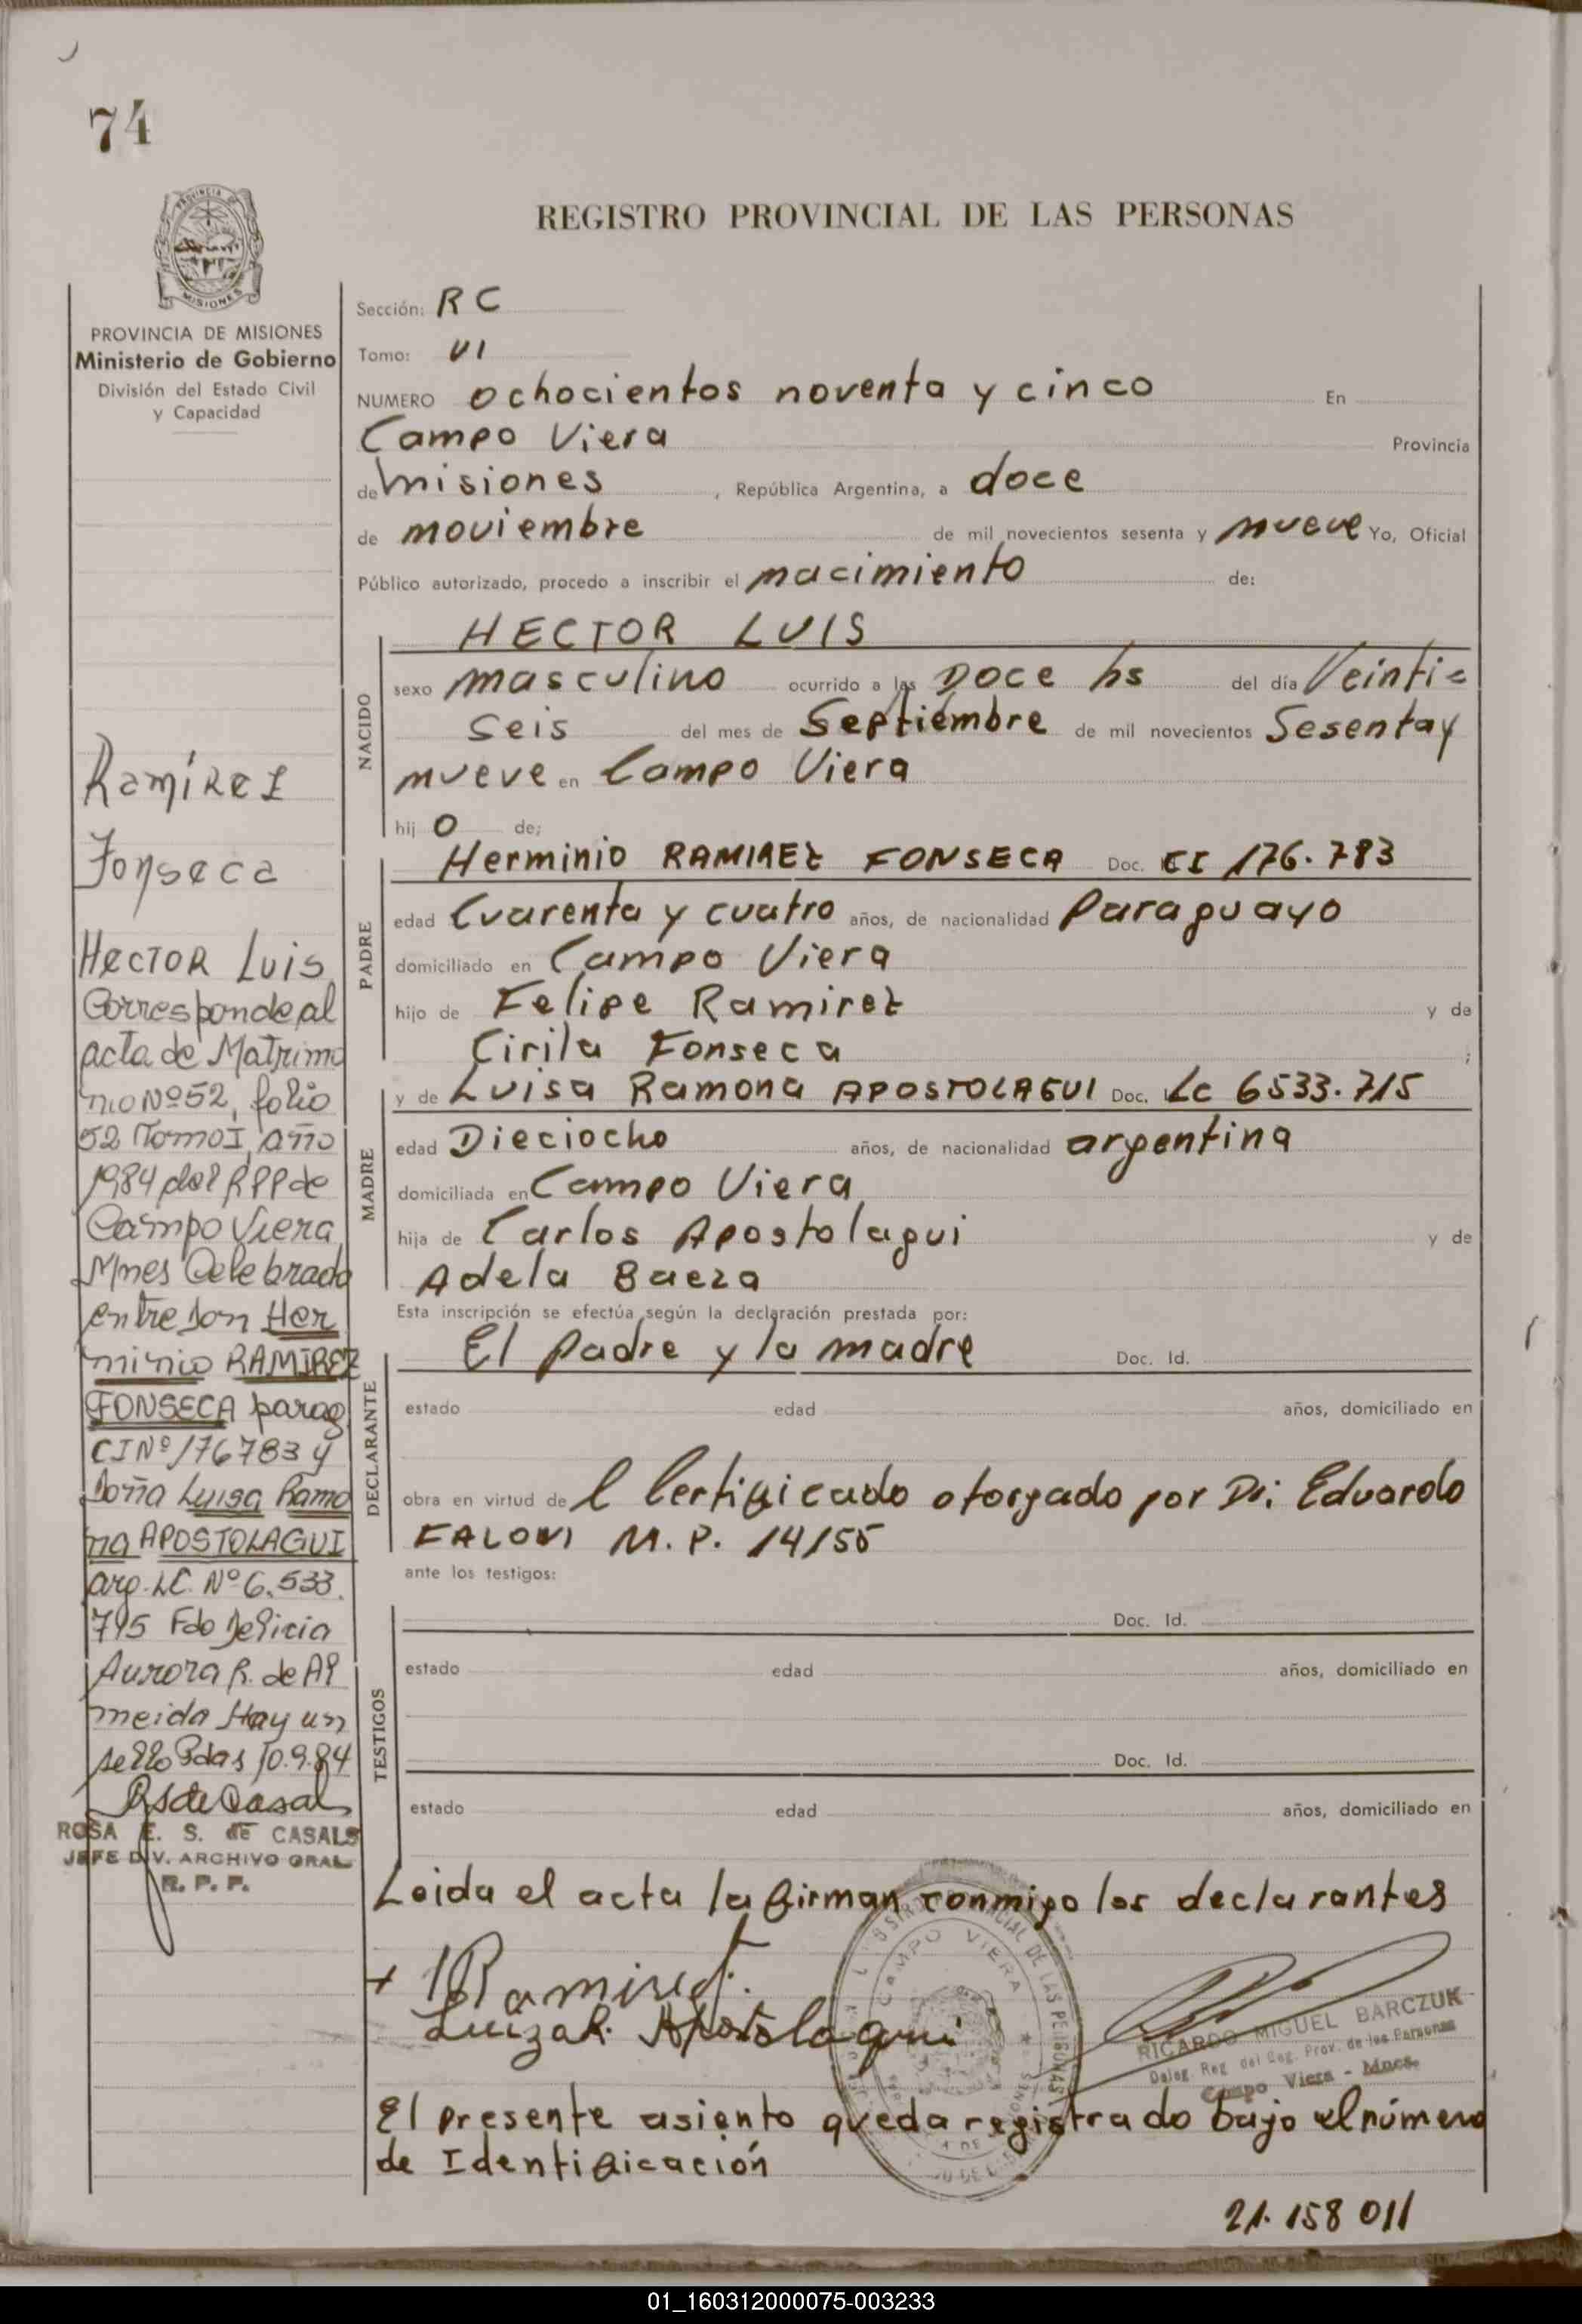 74
PROVINCIA DE
MISIONES
PROVINCIA DE MISIONES
Ministerio de Gobierno
División del Estado Civil
y Capacidad
Ramírez
Fonseca
Hector Luis
Corresponde al
acta de Matrimo
nio Nº 52, folio
52 Tomo I, año
1984 del RPP de
Campo Viera
Mnes Celebrado
entre Don Her
minio RAMIREZ
FONSECA parag
CI Nº 176783 y
Doña Luisa Ramo
na APOSTOLAGUI
arg. LC. Nº 6.533.
715 Fdo Delicia
Aurora R. de Al
meida Hay un
sello Pdas 10.9.84
ROSA E. S. de CASALS
JEFE DIV. ARCHIVO GRAL
R. P. P.
REGISTRO PROVINCIAL DE LAS PERSONAS
Sección: R C
Tomo: VI
NUMERO ochocientos noventa y cinco En
Campo Viera Provincia
de misiones , República Argentina, a doce
de noviembre de mil novecientos sesenta y nueve Yo, Oficial
Público autorizado, procedo a inscribir el nacimiento de:
HECTOR LUIS
NACIDO
sexo masculino ocurrido a las Doce hs del día Veinti=
seis del mes de Septiémbre de mil novecientos Sesenta y
nueve en Campo Viera
hij o de;
PADRE
Herminio RAMIREZ FONSECA Doc. CI 176.783
edad Cuarenta y cuatro años, de nacionalidad Paraguayo
domiciliado en Campo Viera
hijo de Felipe Ramirez y de
Cirila Fonseca ;
MADRE
y de Luisa Ramona APOSTOLAGUI Doc. LC 6533.715
edad Dieciocho años, de nacionalidad argentina
domiciliada en Campo Viera
hija de Carlos Apostolagui y de
Adela Baeza
Esta inscripción se efectúa según la declaración prestada por:
DECLARANTE
El padre y la madre Doc. Id.
estado edad años, domiciliado en
obra en virtud de l Certificado otorgado por Dr: Eduardo
FALOVI M.P. 14/55
ante los testigos:
TESTIGOS
Doc. Id.
estado edad años, domiciliado en
Doc. Id.
estado edad años, domiciliado en
Leida el acta la firman conmigo los declarantes
+ Ramirez
Luiza R. Apostolagui
CAMPO VIERA
RICARDO MIGUEL BARCZUK
Deleg. Reg. del Reg. Prov. de las Personas
Campo Viera - Mnes.
El presente asiento queda registrado bajo el número
de Identificación
21.158 011
01_160312000075-003233